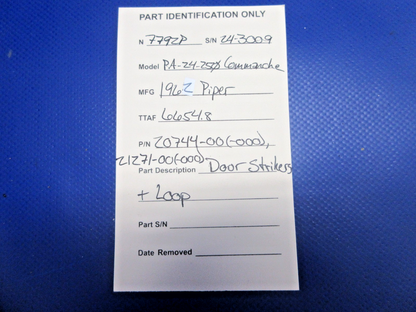 PART IDENTIFICATION ONLY
N 7792P S/N 24-3009
Model PA-24-250 Commanche
MFG 1962 Piper
TTAF 6654.8
P/N 20744-00(-000),
21271-00(-000) Door Strikers
Part Description
+ Loop
Part S/N
Date Removed